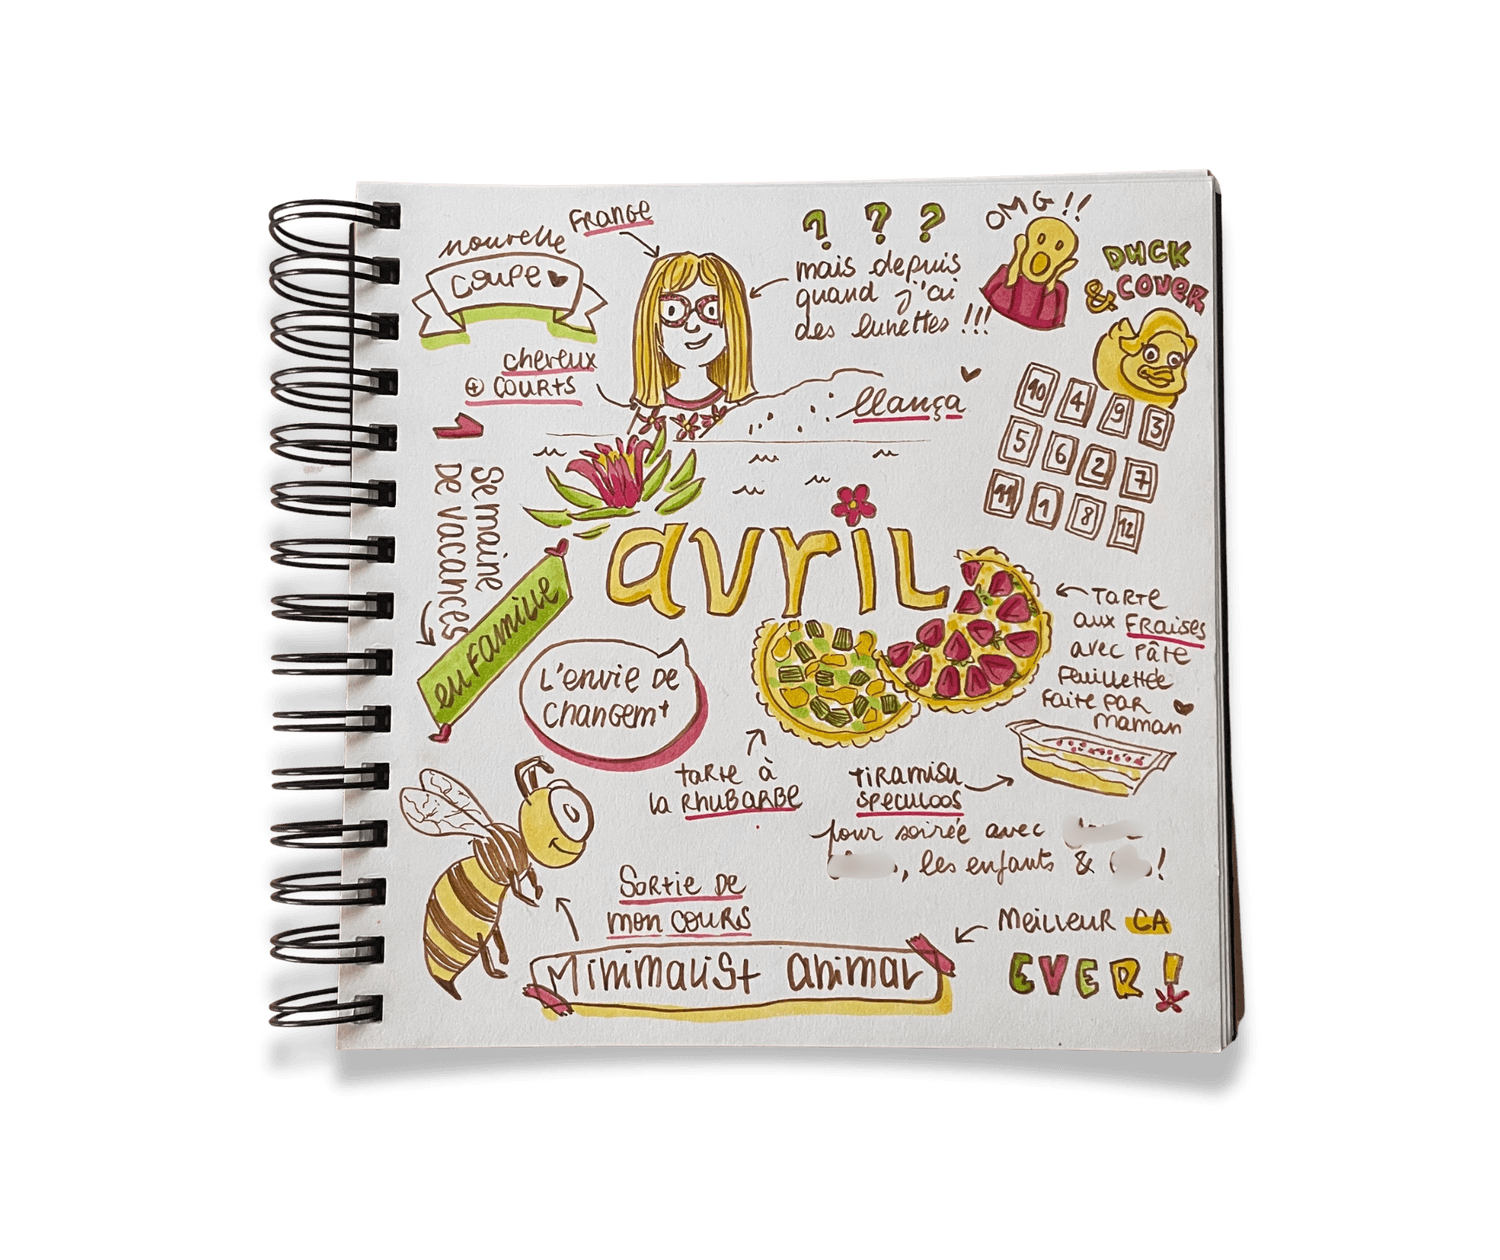 nouvelle
coupe
FRANGE
cheveux
+ COURTS
? ? ?
mais depuis
quand j'ai
des lunettes !!!
OMG !!
DUCK
& COVER
llança
10 4 9 3
5 6 2 7
11 1 8 12
1
Semaine
De vacances
en famille
avril
L'envie De
changemt
TARTE
aux FRAISES
avec PÂTE
Feuilletée
Faite PAR
maman
tarte à
la RHUBARBE
TIRAMISU
SPECULOOS
pour soirée avec
, les enfants & !
SORTIE DE
mon COURS
Minimalist animal
Meilleur CA
EVER !